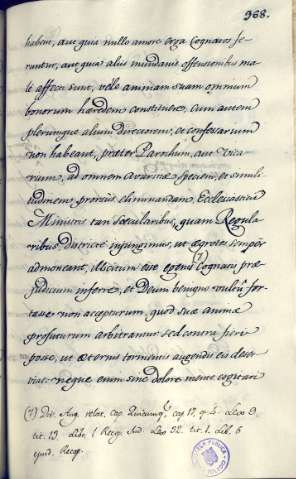 968.
habent, aut quia nullo amore erga Cognatos fe-
runtur, aut quia aliis mundanis offensionibus ma-
le affecti sunt, velle animam suam omnium
bonorum hæredem constituere. Cum autem
plerumque alium directorem, et confessarium
non habeant, præter Parochum, aut Vica-
rium, ad omnem avaritiæ speciem, et simili-
tudinem procius eliminandam Ecclesiasticis
Ministris tam sæcularibus, quam Regula-
ribus, districte injungimus, ut ægrotos semper
admoneant, illicitum esse egenis (7) Cognatis præ-
judicium inferre, et Deum benignis vultu for-
tasse non accepturum, quod suæ animæ
profuturum arbitrantur sed contra fieri
posse, ut æternis tormentis augendis eis deser-
viat: neque enim sine dolore mente cogitari
(7) Div. Aug. relat. cap. Quicumq.e cap 17, q. 4. Leyo 9,
tit. 19. Lib. 1 Recop. Ind. Leyo 32. tit. 1. Lib. 6
ejusd. Recop.